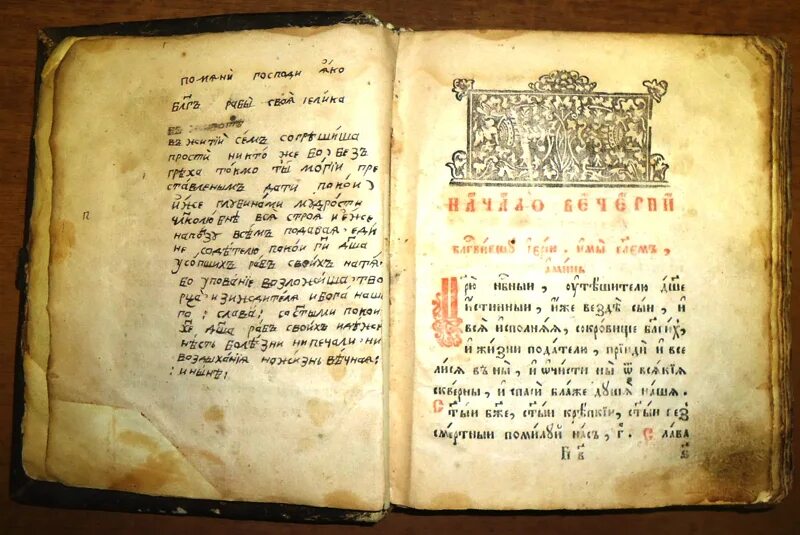 помѧни господи ꙗко
блгъ рабы своѧ елика
въ животѣ
в житїй семъ согрѣшиша
прости никто же бо без
грѣха токмо ты могїи пре
ставленымъ дати покои
иже глубинами мудрости
члколюбне всѧ строѧ и еже
на ползу всѣм подаваѧ еди
не содѣтелю покои ги дша
усопших рабъ своихъ на тѧ
бо упование возложиша тво
рца и зиждителѧ и бога наше
го : слава : со стыми покои
хе дша рабъ своихъ идеже
нѣсть болѣзни ни печали ни
воздыханиѧ но жизнь вѣчнаѧ :
: и ннѣ :
п
НАЧАЛО ВЕЧЕРНИ
Блгвившу їерѣи . имы глемъ ,
аминь
Црю нбный , ѹтѣшителю дше
истинный , иже вездѣ сыи , и
всѧ исполнѧѧ , сокровище благих ,
и жизни подателю , прїиди и все
лисѧ в ны , и ѡчисти ны ѿ всѧкїѧ
скверны , и спаси блаже дшѧ нашѧ .
Стыи бже , стыи крѣпкїи , стыи без
смертныи помилуй насъ , г҃ . Слава